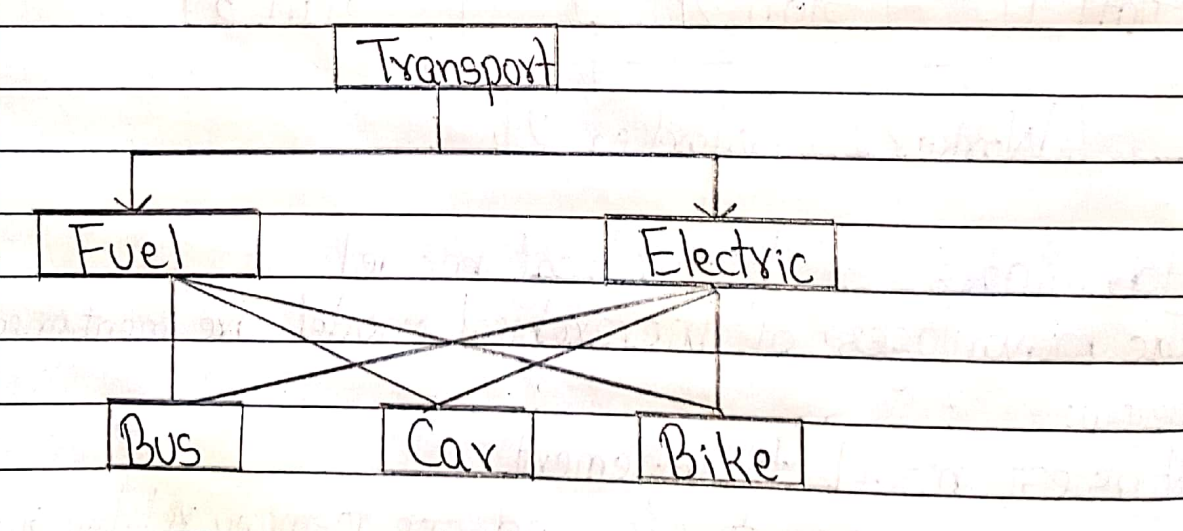 Transport
Fuel Electric
Bus Car Bike